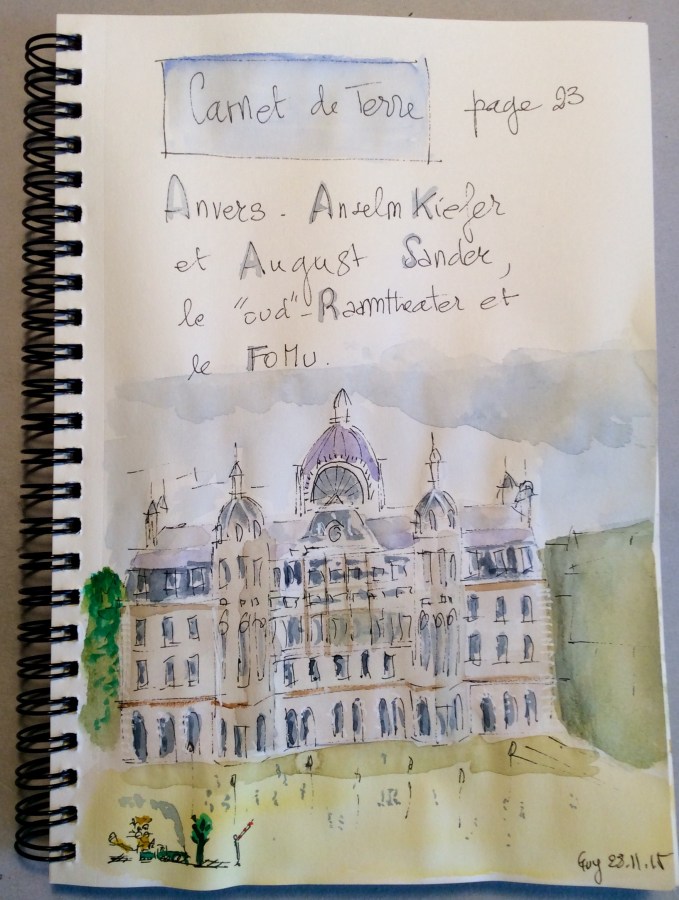 Carnet de Terre page 23
Anvers. Anselm Kiefer
et August Sander,
le "oud"-Raamtheater et
le FoMu.
Guy 28.11.15